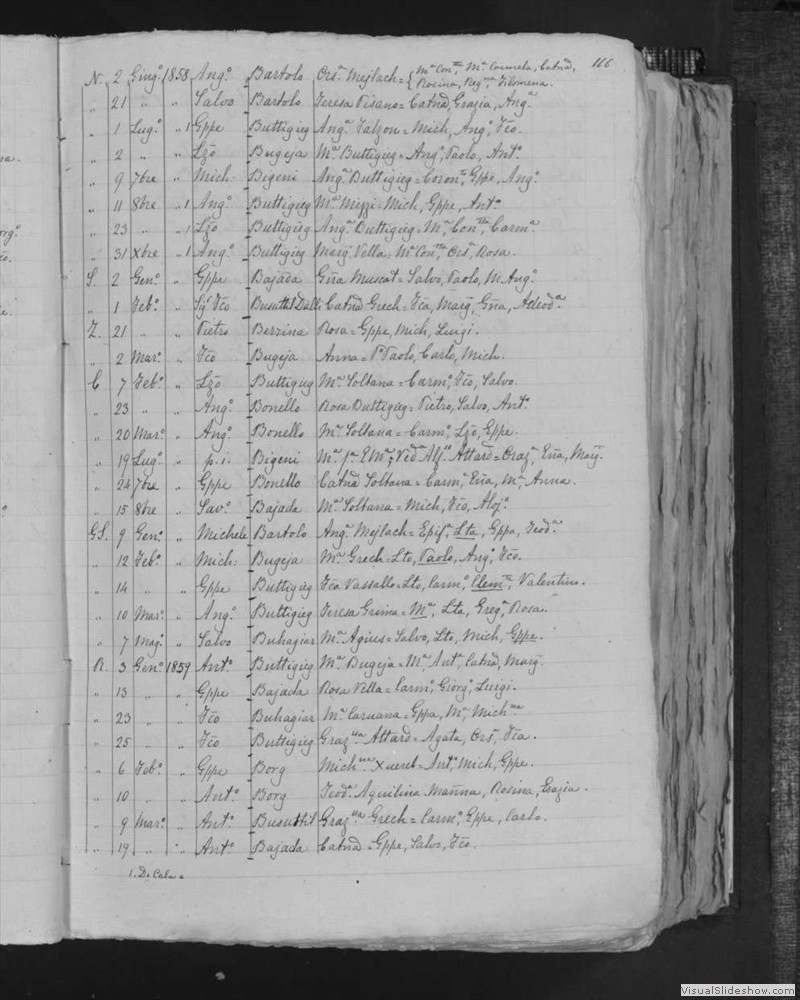 116
N. 2 Giug° 1858 Ang° Bartolo Ors.ª Mejlach = { Mª Con.ne Mª Carmela, Catnª, Rosina, Reg.na, Filomena.
" 21 " " Salvo Bartolo Teresa Pisano = Catnª Grazia, Ang.ª
" 1 Lug° " 1 Gppe Buttigieg Ang.ª Falzon = Mich, Ang°, Fco.
" 2 " " Lzo Bugeja Mª Buttigieg = Ang°, Paolo, Ant°.
" 9 7bre " Mich: Bigeni Ang.ª Buttigieg = Coron.ª, Gppe, Ang°.
" 11 8bre " 1 Ang° Buttigieg Mª Mizzi = Mich, Gppe, Ant°
" 23 " " 1 Lzo Buttigieg Ang.ª Buttigieg = Mª Con.tta, Carm.ª
" 31 Xbre " 1 Ang° Buttigieg Marg. Vella = Mª Con.tta, Ors.ª, Rosa.
S. 2 Gen° " Gppe Bajada Gña Muscat = Salvo, Paolo, M. Ang°.
" 1 Feb° " Sg. Fco Busuttil Dalli Catnª Grech = Fca, Marg, Gña, Adeod.ª
Z. 21 " " Pietro Berzina Rosa = Gppe, Mich, Luigi.
" 2 Mar° " Fco Bugeja Anna = P. Paolo, Carlo, Mich.
C 7 Feb° " Lzo Buttigieg Mª Soltana = Carm°, Fco, Salvo.
" 23 " " Ang° Bonello Rosa Buttigieg = Pietro, Salvo, Ant°.
" 20 Mar° " Ang° Bonello Mª Soltana = Carm°, Lzo, Gppe.
" 19 Lug° " p.i. Bigeni Attard = Graz.ª Marg.
" 24 7bre " Gppe Bonello Catnª Soltana = Carm, Mª, Anna.
" 15 8bre " Sav° Bajada Mª Soltana = Mich, Fco, Aloj°.
GS. 9 Gen° " Michele Bartolo Ang.ª Mejlach = Epif.ª, Lta, Gppa, Teod.ª
" 12 Feb° " Mich: Bugeja Mª Grech = Lto, Paolo, Ang°, Fco.
" 14 " " Gppe Buttigieg Fca Vassallo = Lto, Carm°, Clem.te, Valentino.
" 10 Mar° " Ang° Buttigieg Teresa Grima = Mª, Lta, Greg°, Rosa.
" 7 Mag° " Salvo Buhagiar Mª Agius = Salvo, Lto, Mich, Gppe.
R. 3 Gen° 1859 Ant° Buttigieg Mª Bugeja = Mª Ant.ª, Catnª, Marg.
" 13 " " Gppe Bajada Rosa Vella = Carm°, Giorg°, Luigi.
" 23 " " Fco Buhagiar Mª Caruana = Gppa, Mª, Mich.na
" 25 " " Fco Buttigieg Graz.na Attard = Agata, Ors.ª, Fca.
" 6 Feb° " Gppe Borg Mich.na Xuereb = Ant°, Mich, Gppe.
" 10 " " Ant° Borg Teod.ª Aquilina = Rosina, Grazia.
" 9 Mar° " Ant° Busuttil Graz.na Grech = Carm°, Gppe, Carlo.
" 19 " " Ant° Bajada Catnª = Gppe, Salvo, Fco.
1. De Cala =
VisualSlideshow.com